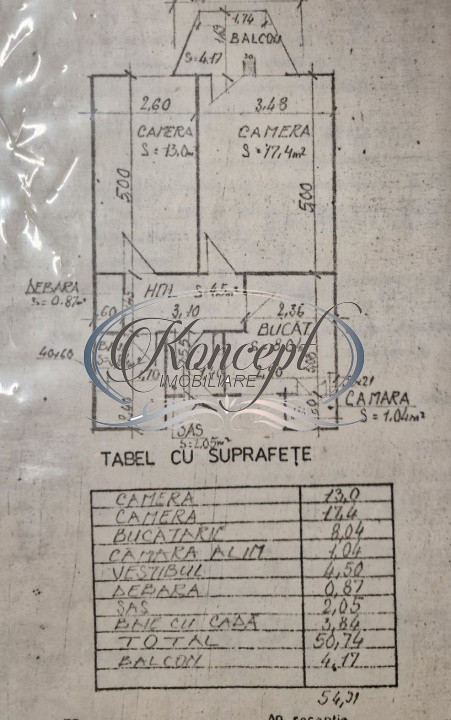 1,74
BALCON
S=4.17
2,60
3,48
CAMERA
CAMERA
S = 13.0m²
S = 17,4m²
500
500
DEBARA
S=0.87m²
HOL
S=4.5m²
60
3,10
2,36
BUCĂT
40x60
Koncept
IMOBILIARE
CAMARA
S = 1.04m²
SAS
S=2.05m²
TABEL CU SUPRAFEȚE
CAMERA 13,0
CAMERA 17,4
BUCATARIE 8,04
CAMARA ALIM 1,04
VESTIBUL 4,50
DEBARA 0,87
SAS 2,05
BAIE CU CADĂ 3,84
TOTAL 50,74
BALCON 4,17
54,91